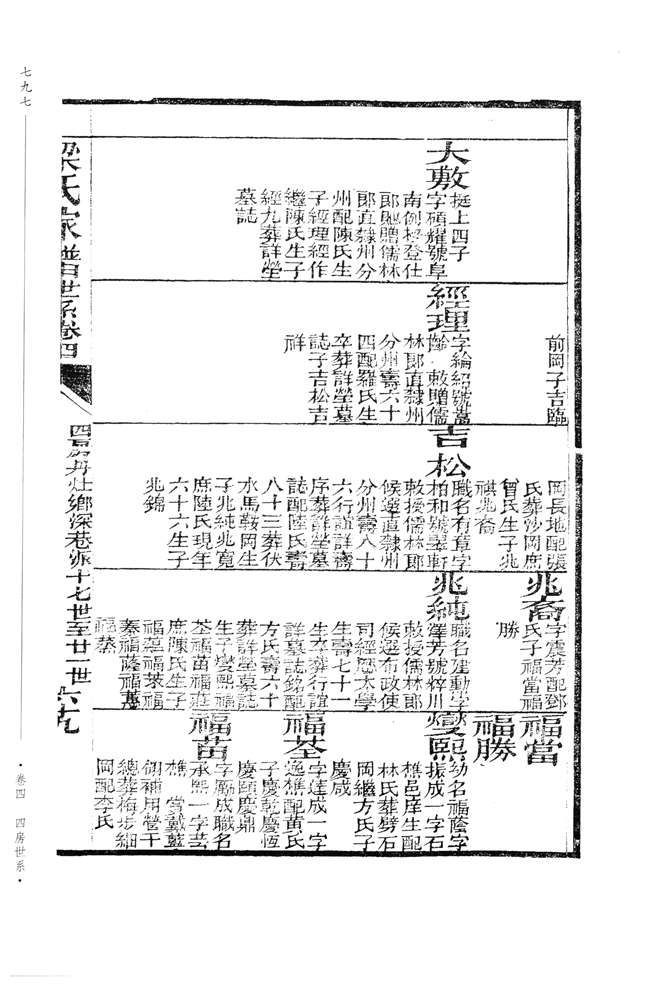 七九七
大敷
挺上四子
字碩耀號阜
南例授登仕
郎貤贈儒林
郎直隸州分
州配陳氏生
子經理經作
繼陳氏生子
經九葬詳塋
墓誌
前岡子吉臨
經理
字綸紹號嵩
敕贈儒
林郎直隸州
分州壽六十
四配羅氏生
卒葬詳塋墓
誌子吉松吉
祥
岡長地配張
氏葬沙岡庶
曾氏生子兆
祺兆裔
吉松
職名有章字
柏和號翠軒
敕授儒林郎
候選直隸州
分州壽八十
六行誼詳壽
序葬詳塋墓
誌配陸氏壽
八十三葬伏
水馬鞍岡生
子兆純兆寬
庶陸氏現年
六十六生子
兆錦
兆裔
字震芳配鄧
氏子福當福
勝
兆純
職名建勳字
澤芳號梓川
敕授儒林郎
候選布政使
司經歷太學
生壽七十一
生卒葬行誼
詳墓誌銘配
方氏壽六十
葬詳塋墓誌
生子燮熙福
荃福苗福莊
庶陳氏生子
福蓴福萊福
蓁福蔭福
福蔡
福當
福勝
燮熙
幼名福蔭字
振成一字石
樵邑庠生配
林氏葬劈石
岡繼方氏子
慶咸
福荃
字達成一字
逸樵配黃氏
子慶乾慶恆
慶頤慶鼎
福苗
字勵成職名
承熙一字芸
樵 賞戴藍
翎補用營千
總葬梅步細
岡配李氏
梁氏家譜世系卷四
四房丹灶鄉深巷派十七世至廿一世
六十九
·卷四 四房世系·